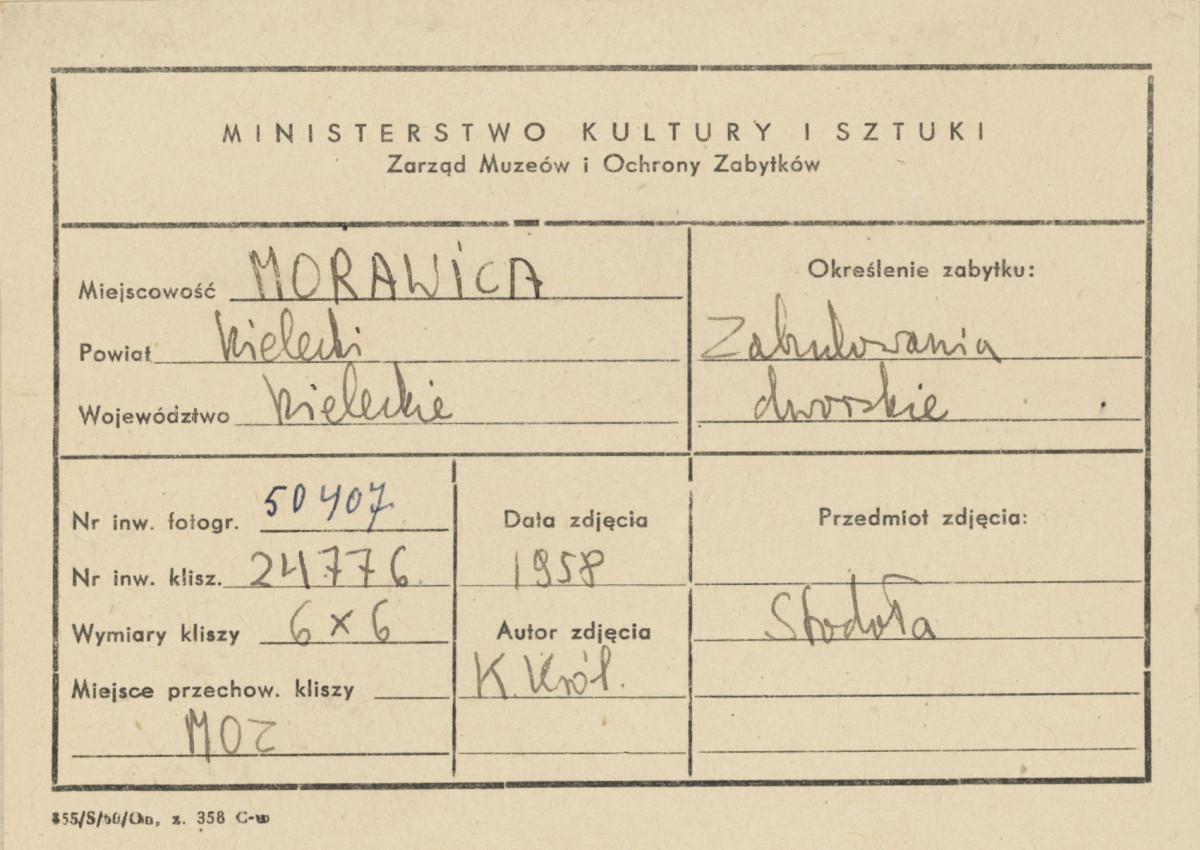 MINISTERSTWO KULTURY I SZTUKI
Zarząd Muzeów i Ochrony Zabytków
Miejscowość MORAWICA
Powiat kielecki
Województwo kieleckie
Określenie zabytku:
Zabudowania
dworskie
Nr inw. fotogr. 50407
Nr inw. klisz. 24776
Wymiary kliszy 6 x 6
Miejsce przechow. kliszy
MOZ
Data zdjęcia
1958
Autor zdjęcia
K. Król.
Przedmiot zdjęcia:
Stodoła
z. 358 C-w